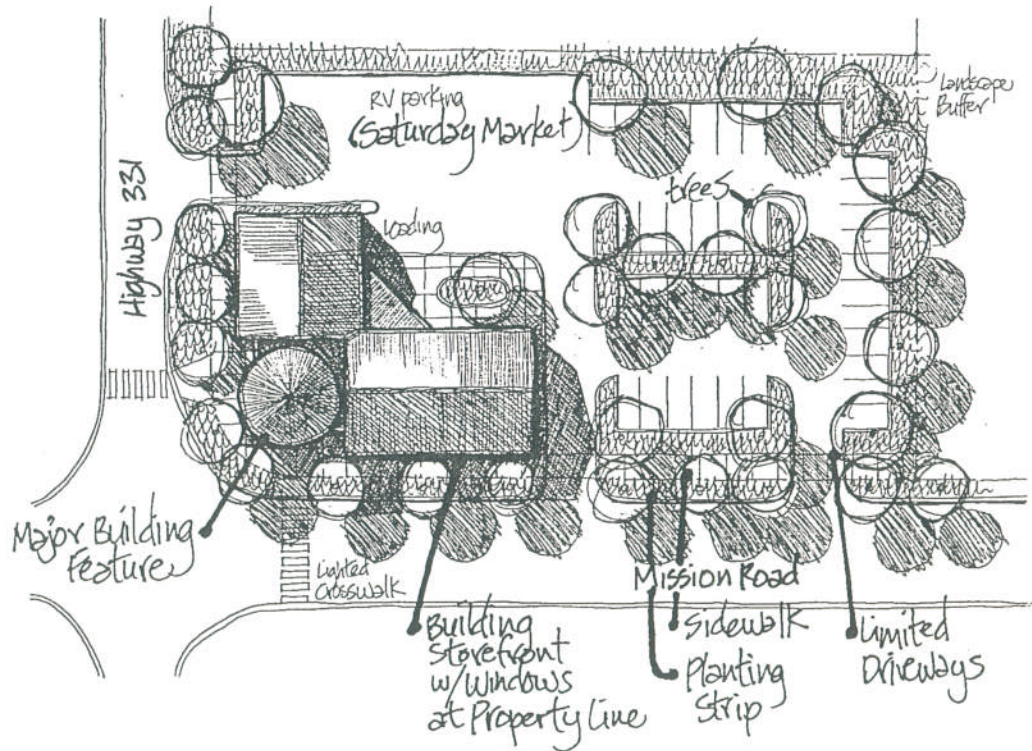 Landscape
Buffer
RV parking
(Saturday Market)
trees
Highway 331
Loading
Major Building
Feature
Lighted
Crosswalk
Mission Road
Building
Storefront
w/Windows
at Property Line
Sidewalk
Planting
Strip
Limited
Driveways